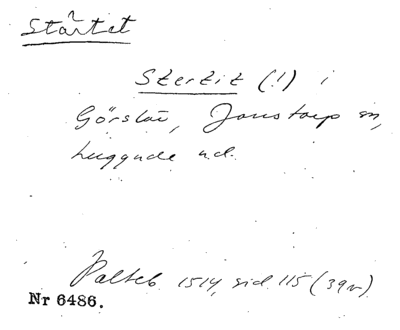 Stårtet
Stertit (!) i
Görslöv, Jonstorp sn,
Luggude hd.
Palteb. 1514, sid. 115 (39v)
Nr 6486.